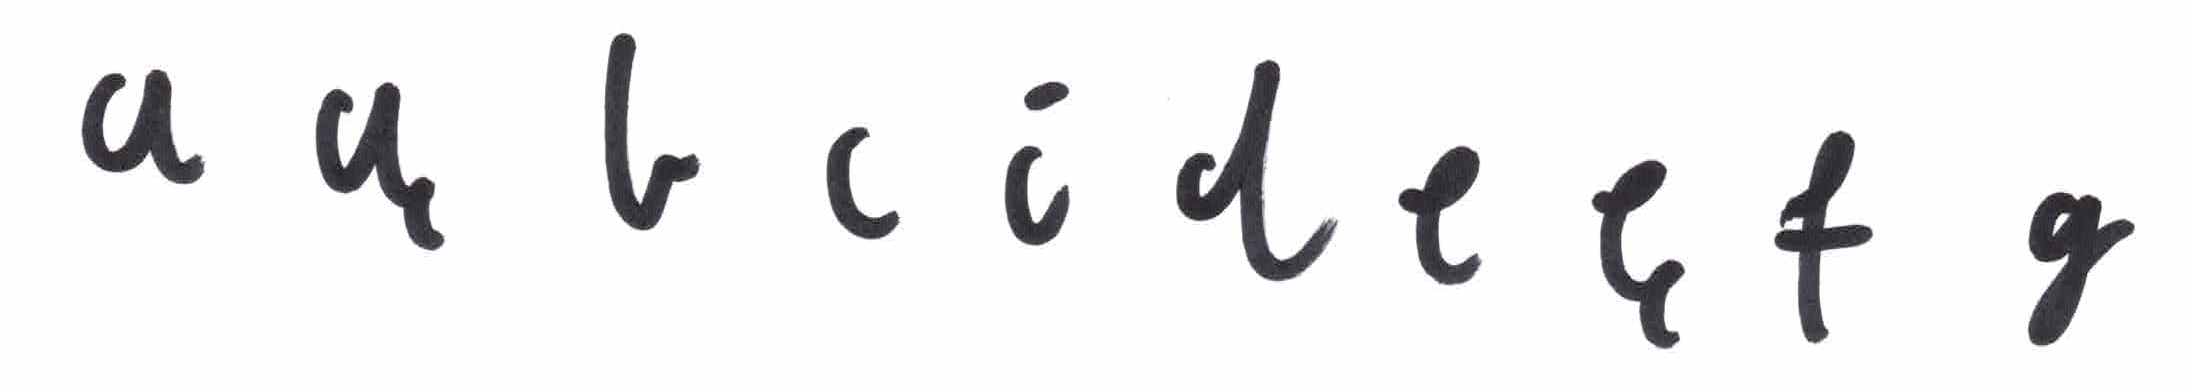 a ą b c ć d e ę f g